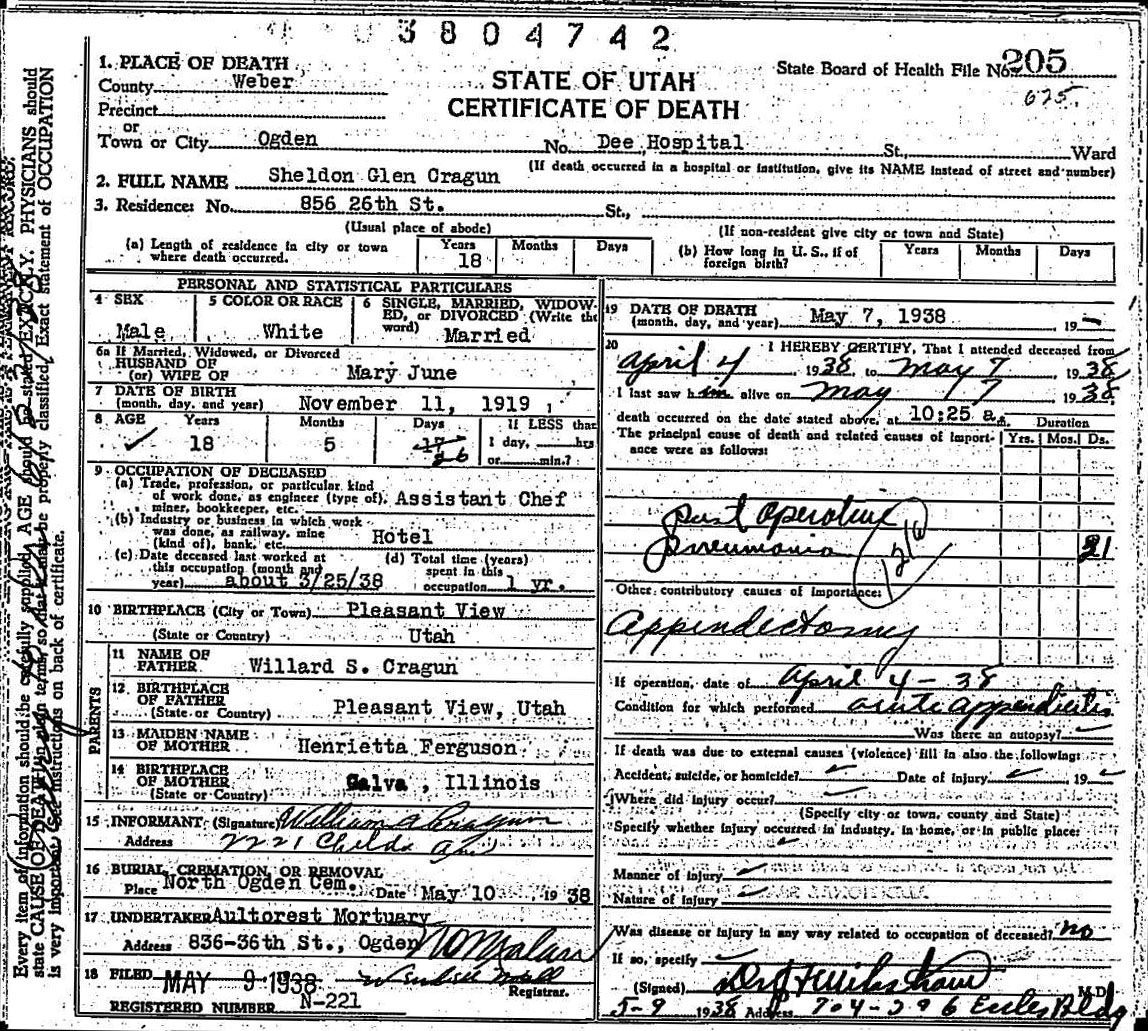 3804742
1. PLACE OF DEATH
County Weber
STATE OF UTAH
CERTIFICATE OF DEATH
State Board of Health File No. 205
675
Precinct
or
Town or City Ogden No. Dee Hospital St., Ward
(If death occurred in a hospital or institution, give its NAME instead of street and number)
2. FULL NAME Sheldon Glen Cragun
3. Residence: No. 856 26th St. St.,
(Usual place of abode) (If non-resident give city or town and State)
(a) Length of residence in city or town where death occurred. Years 18 Months Days
(b) How long in U. S., if of foreign birth? Years Months Days
PERSONAL AND STATISTICAL PARTICULARS
4 SEX Male
5 COLOR OR RACE White
6 SINGLE, MARRIED, WIDOWED, or DIVORCED (Write the word) Married
6a If Married, Widowed, or Divorced
HUSBAND OF
(or) WIFE OF Mary June
7 DATE OF BIRTH
(month, day, and year) November 11, 1919
8 AGE Years Months Days If LESS than
18 5 17 26 1 day, hrs
or min.?
9 OCCUPATION OF DECEASED
(a) Trade, profession, or particular kind
of work done, as engineer (type of), Assistant Chef
miner, bookkeeper, etc.
(b) Industry or business in which work
was done, as railway, mine
(kind of), bank, etc. Hotel
(c) Date deceased last worked at
this occupation (month and
year) about 3/25/38
(d) Total time (years)
spent in this
occupation 1 yr.
10 BIRTHPLACE (City or Town) Pleasant View
(State or Country) Utah
PARENTS
11 NAME OF
FATHER Willard S. Cragun
12 BIRTHPLACE
OF FATHER
(State or Country) Pleasant View, Utah
13 MAIDEN NAME
OF MOTHER Henrietta Ferguson
14 BIRTHPLACE
OF MOTHER
(State or Country) Galva, Illinois
15 INFORMANT (Signature) William Cragun
Address Childs Ave
16 BURIAL, CREMATION, OR REMOVAL
Place North Ogden Cem. Date May 10 1938
17 UNDERTAKER Aultorest Mortuary
Address 836-36th St., Ogden
18 FILED MAY 9 1938
Registrar.
REGISTERED NUMBER N-221
19 DATE OF DEATH
(month, day, and year) May 7, 1938 19-
20 I HEREBY CERTIFY, That I attended deceased from
April 4 1938 to May 7 1938
I last saw him alive on May 7 1938
death occurred on the date stated above, at 10:25 a.m. Duration
The principal cause of death and related causes of importance were as follows: Yrs. Mos. Ds.
post operative
pneumonia 21
Other contributory causes of importance:
Appendectomy
If operation, date of April 4-38
Condition for which performed acute appendicitis
Was there an autopsy?
If death was due to external causes (violence) fill in also the following:
Accident, suicide, or homicide? Date of injury 19
Where did injury occur?
(Specify city or town, county and State)
Specify whether injury occurred in industry, in home, or in public place:
Manner of injury
Nature of injury
Was disease or injury in any way related to occupation of deceased? no
If so, specify
(Signed) M.D.
5-9 1938 Address Eccles Bldg
Every item of information should be carefully supplied. AGE should be stated EXACTLY. PHYSICIANS should
state CAUSE OF DEATH in plain terms, so that it may be properly classified. Exact statement of OCCUPATION
is very important. See instructions on back of certificate.